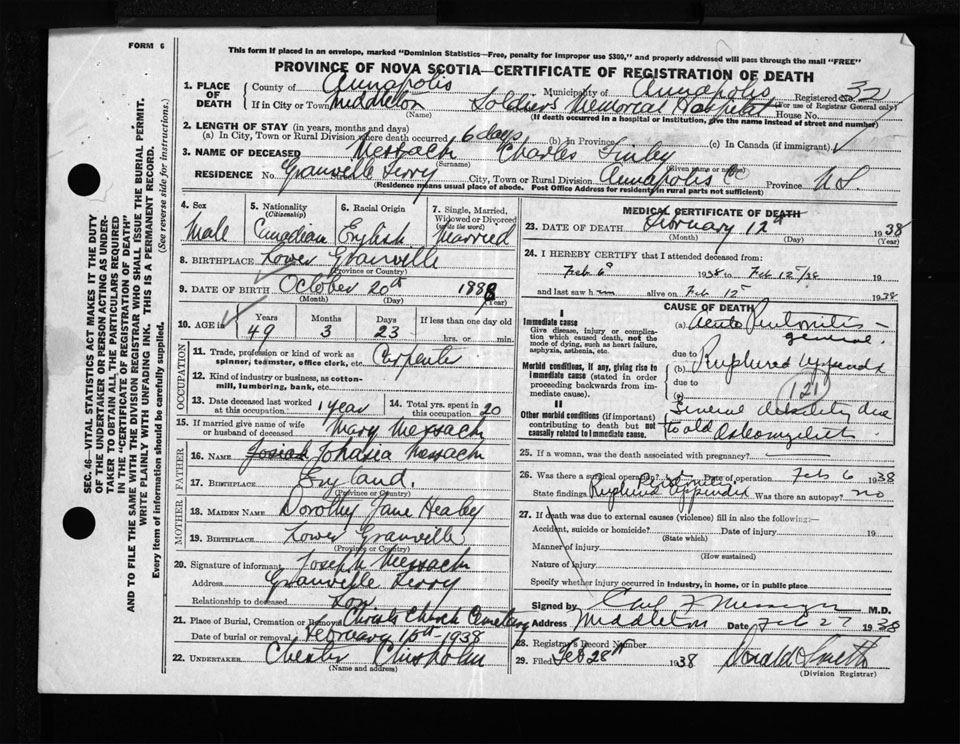 FORM 6
This form if placed in an envelope, marked "Dominion Statistics—Free, penalty for improper use $300," and properly addressed will pass through the mail "FREE"
PROVINCE OF NOVA SCOTIA—CERTIFICATE OF REGISTRATION OF DEATH
SEC. 46—VITAL STATISTICS ACT MAKES IT THE DUTY
OF THE UNDERTAKER OR PERSON ACTING AS UNDER-
TAKER TO OBTAIN ALL THE PARTICULARS REQUIRED
IN THE "CERTIFICATE OF REGISTRATION OF DEATH"
AND TO FILE THE SAME WITH THE DIVISION REGISTRAR WHO SHALL ISSUE THE BURIAL PERMIT.
WRITE PLAINLY WITH UNFADING INK. THIS IS A PERMANENT RECORD.
Every item of information should be carefully supplied. (See reverse side for instructions.)
1. PLACE OF DEATH County of Annapolis Municipality of Annapolis Registered No. 32
If in City or Town Middleton Soldiers Memorial Hospital House No. (For use of Registrar General only)
(Name) (If death occurred in a hospital or institution, give the name instead of street and number)
2. LENGTH OF STAY (in years, months and days)
(a) In City, Town or Rural Division where death occurred 6 days (b) in Province (c) In Canada (if immigrant)
3. NAME OF DECEASED Messach Charles
(Surname) (Given name or names)
RESIDENCE No. Street Granville Ferry City, Town or Rural Division Annapolis Co Province N S
(Residence means usual place of abode. Post Office Address for residents in rural parts not sufficient)
4. Sex Male
5. Nationality (Citizenship) Canadian
6. Racial Origin English
7. Single, Married, Widowed or Divorced (write the word) Married
8. BIRTHPLACE Lower Granville
(Province or Country)
9. DATE OF BIRTH October 20th 1888
(Month) (Day) (Year)
10. AGE in Years Months Days If less than one day old
49 3 23 hrs. or min.
OCCUPATION
11. Trade, profession or kind of work as spinner, teamster, office clerk, etc. Carpenter
12. Kind of industry or business, as cotton-mill, lumbering, bank, etc.
13. Date deceased last worked at this occupation 1 year
14. Total yrs. spent in this occupation 20
15. If married give name of wife or husband of deceased Mary Messach
FATHER
16. NAME Josiah Messach
17. BIRTHPLACE England.
(Province or Country)
MOTHER
18. MAIDEN NAME Dorothy Jane Healey
19. BIRTHPLACE Lower Granville
(Province or Country)
20. Signature of informant Joseph Messach
Address Granville Ferry
Relationship to deceased Son
21. Place of Burial, Cremation or Removal Christ Church Cemetery
Date of burial or removal February 15th 1938
22. UNDERTAKER Chester Chisholm
(Name and address)
MEDICAL CERTIFICATE OF DEATH
23. DATE OF DEATH February 12th 1938
(Month) (Day) (Year)
24. I HEREBY CERTIFY that I attended deceased from:
Feb 6 1938 to Feb 12/38 19
and last saw him alive on Feb 12 1938
CAUSE OF DEATH
I
Immediate cause
Give disease, injury or complication which caused death, not the mode of dying, such as heart failure, asphyxia, asthenia, etc.
(a) Acute Peritonitis - general.
due to
Morbid conditions, if any, giving rise to immediate cause (stated in order proceeding backwards from immediate).
(b) Ruptured Appendix
due to
(121)
(c)
II
Other morbid conditions (if important) contributing to death but not causally related to immediate cause.
General debility due to old Osteomyelitis
25. If a woman, was the death associated with pregnancy?
26. Was there a surgical operation? Date of operation Feb 6 1938
State findings Peritonitis Ruptured Appendix Was there an autopsy? no
27. If death was due to external causes (violence) fill in also the following:—
Accident, suicide or homicide? Date of injury 19
(State which)
Manner of injury
(How sustained)
Nature of injury
Specify whether injury occurred in industry, in home, or in public place
Signed by M.D.
Address Middleton Date Feb 27 1938
28. Registrar's Record Number
29. Filed Feb 28th 1938 Donald Smith
(Division Registrar)